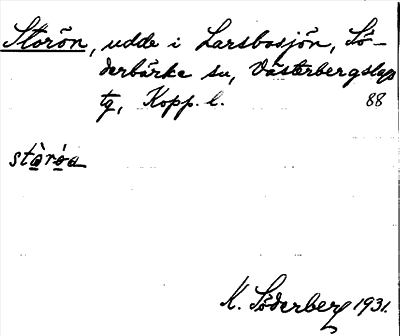 Storön, udde i Larsbosjön, Sö-
derbärke sn, Västerbergslags
tg, Kopp. l. 88
stòrǿa
K. Söderberg 1931.